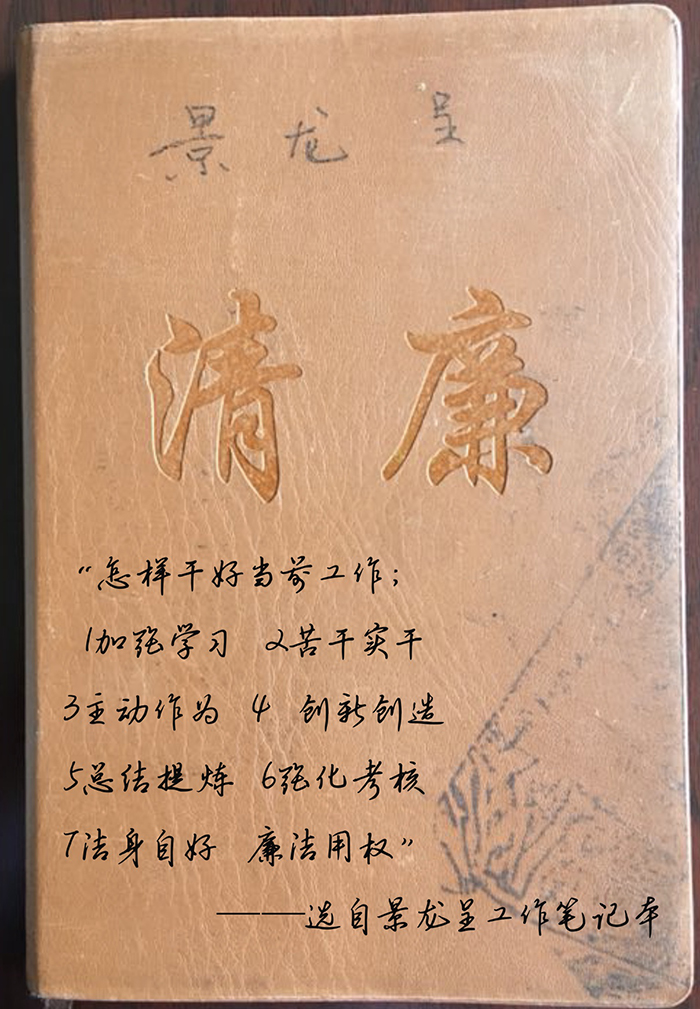 景龙呈
清廉
“怎样干好当前工作;
1加强学习 2苦干实干
3主动作为 4 创新创造
5总结提炼 6强化考核
7洁身自好 廉洁用权”
———选自景龙呈工作笔记本